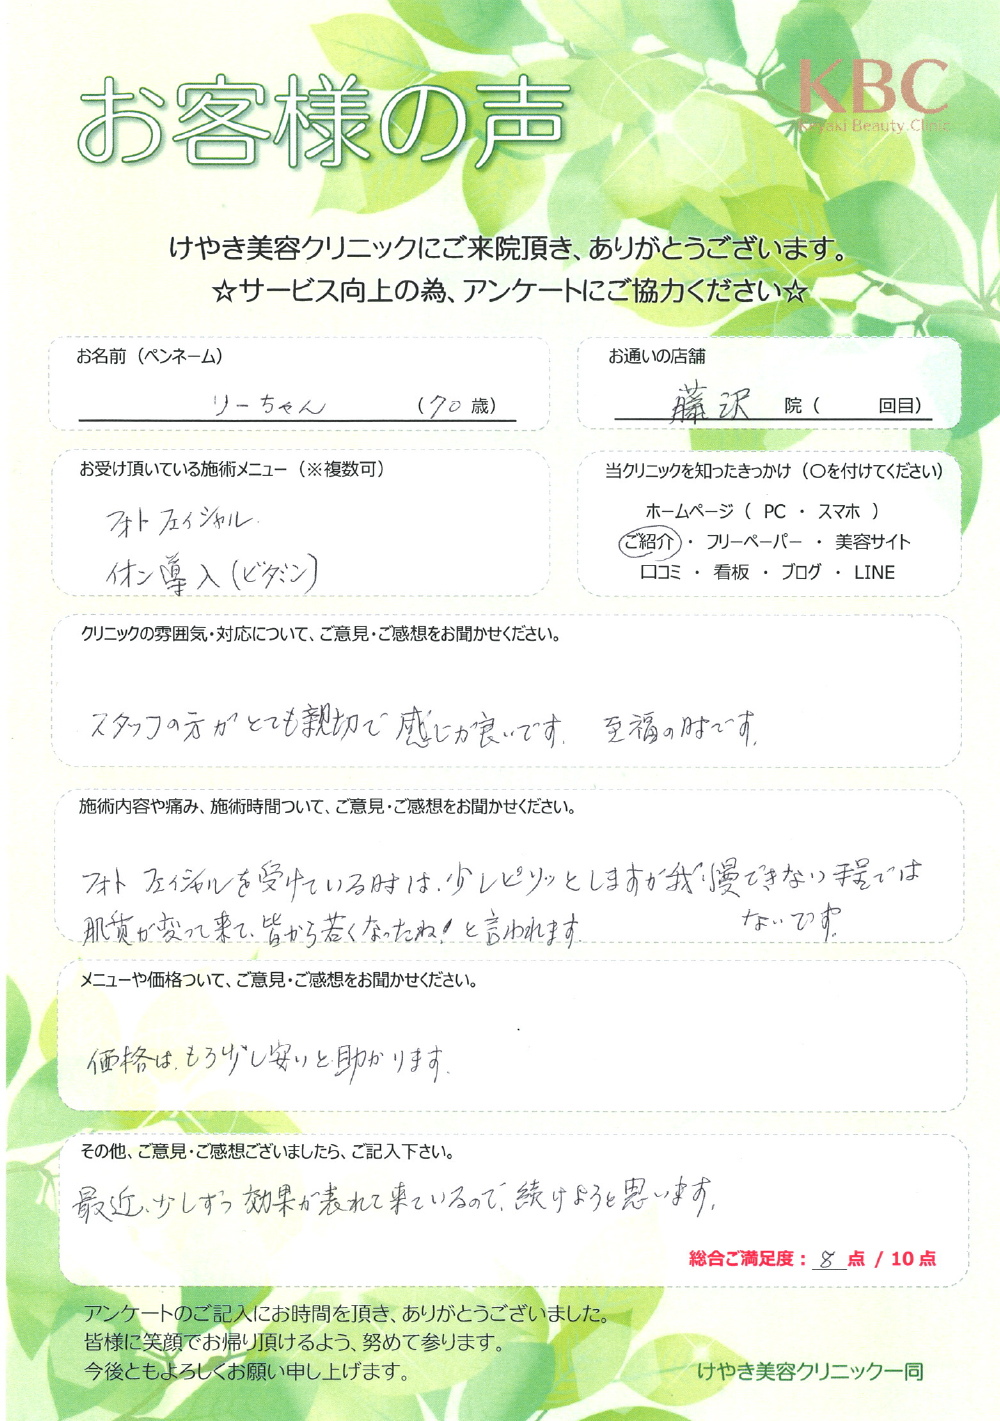 お客様の声
KBC
Keyaki Beauty Clinic
けやき美容クリニックにご来院頂き、ありがとうございます。
☆サービス向上の為、アンケートにご協力ください☆
お名前（ペンネーム）
リーちゃん （70歳）
お通いの店舗
藤沢 院（ 回目）
お受け頂いている施術メニュー（※複数可）
フォトフェイシャル
イオン導入（ビタミン）
当クリニックを知ったきっかけ（〇を付けてください）
ホームページ（ PC ・ スマホ ）
ご紹介 ・ フリーペーパー ・ 美容サイト
口コミ ・ 看板 ・ ブログ ・ LINE
クリニックの雰囲気・対応について、ご意見・ご感想をお聞かせください。
スタッフの方がとても親切で感じが良いです。 至福の時です。
施術内容や痛み、施術時間ついて、ご意見・ご感想をお聞かせください。
フォトフェイシャルを受けている時は、少しピリッとしますが我慢できない程では
ないです。
肌質が変って来て、皆から若くなったね！と言われます。
メニューや価格ついて、ご意見・ご感想をお聞かせください。
価格は、もう少し安いと助かります。
その他、ご意見・ご感想ございましたら、ご記入下さい。
最近、少しずつ効果が表れて来ているので、続けようと思います。
総合ご満足度： 8 点 / 10 点
アンケートのご記入にお時間を頂き、ありがとうございました。
皆様に笑顔でお帰り頂けるよう、努めて参ります。
今後ともよろしくお願い申し上げます。
けやき美容クリニック一同